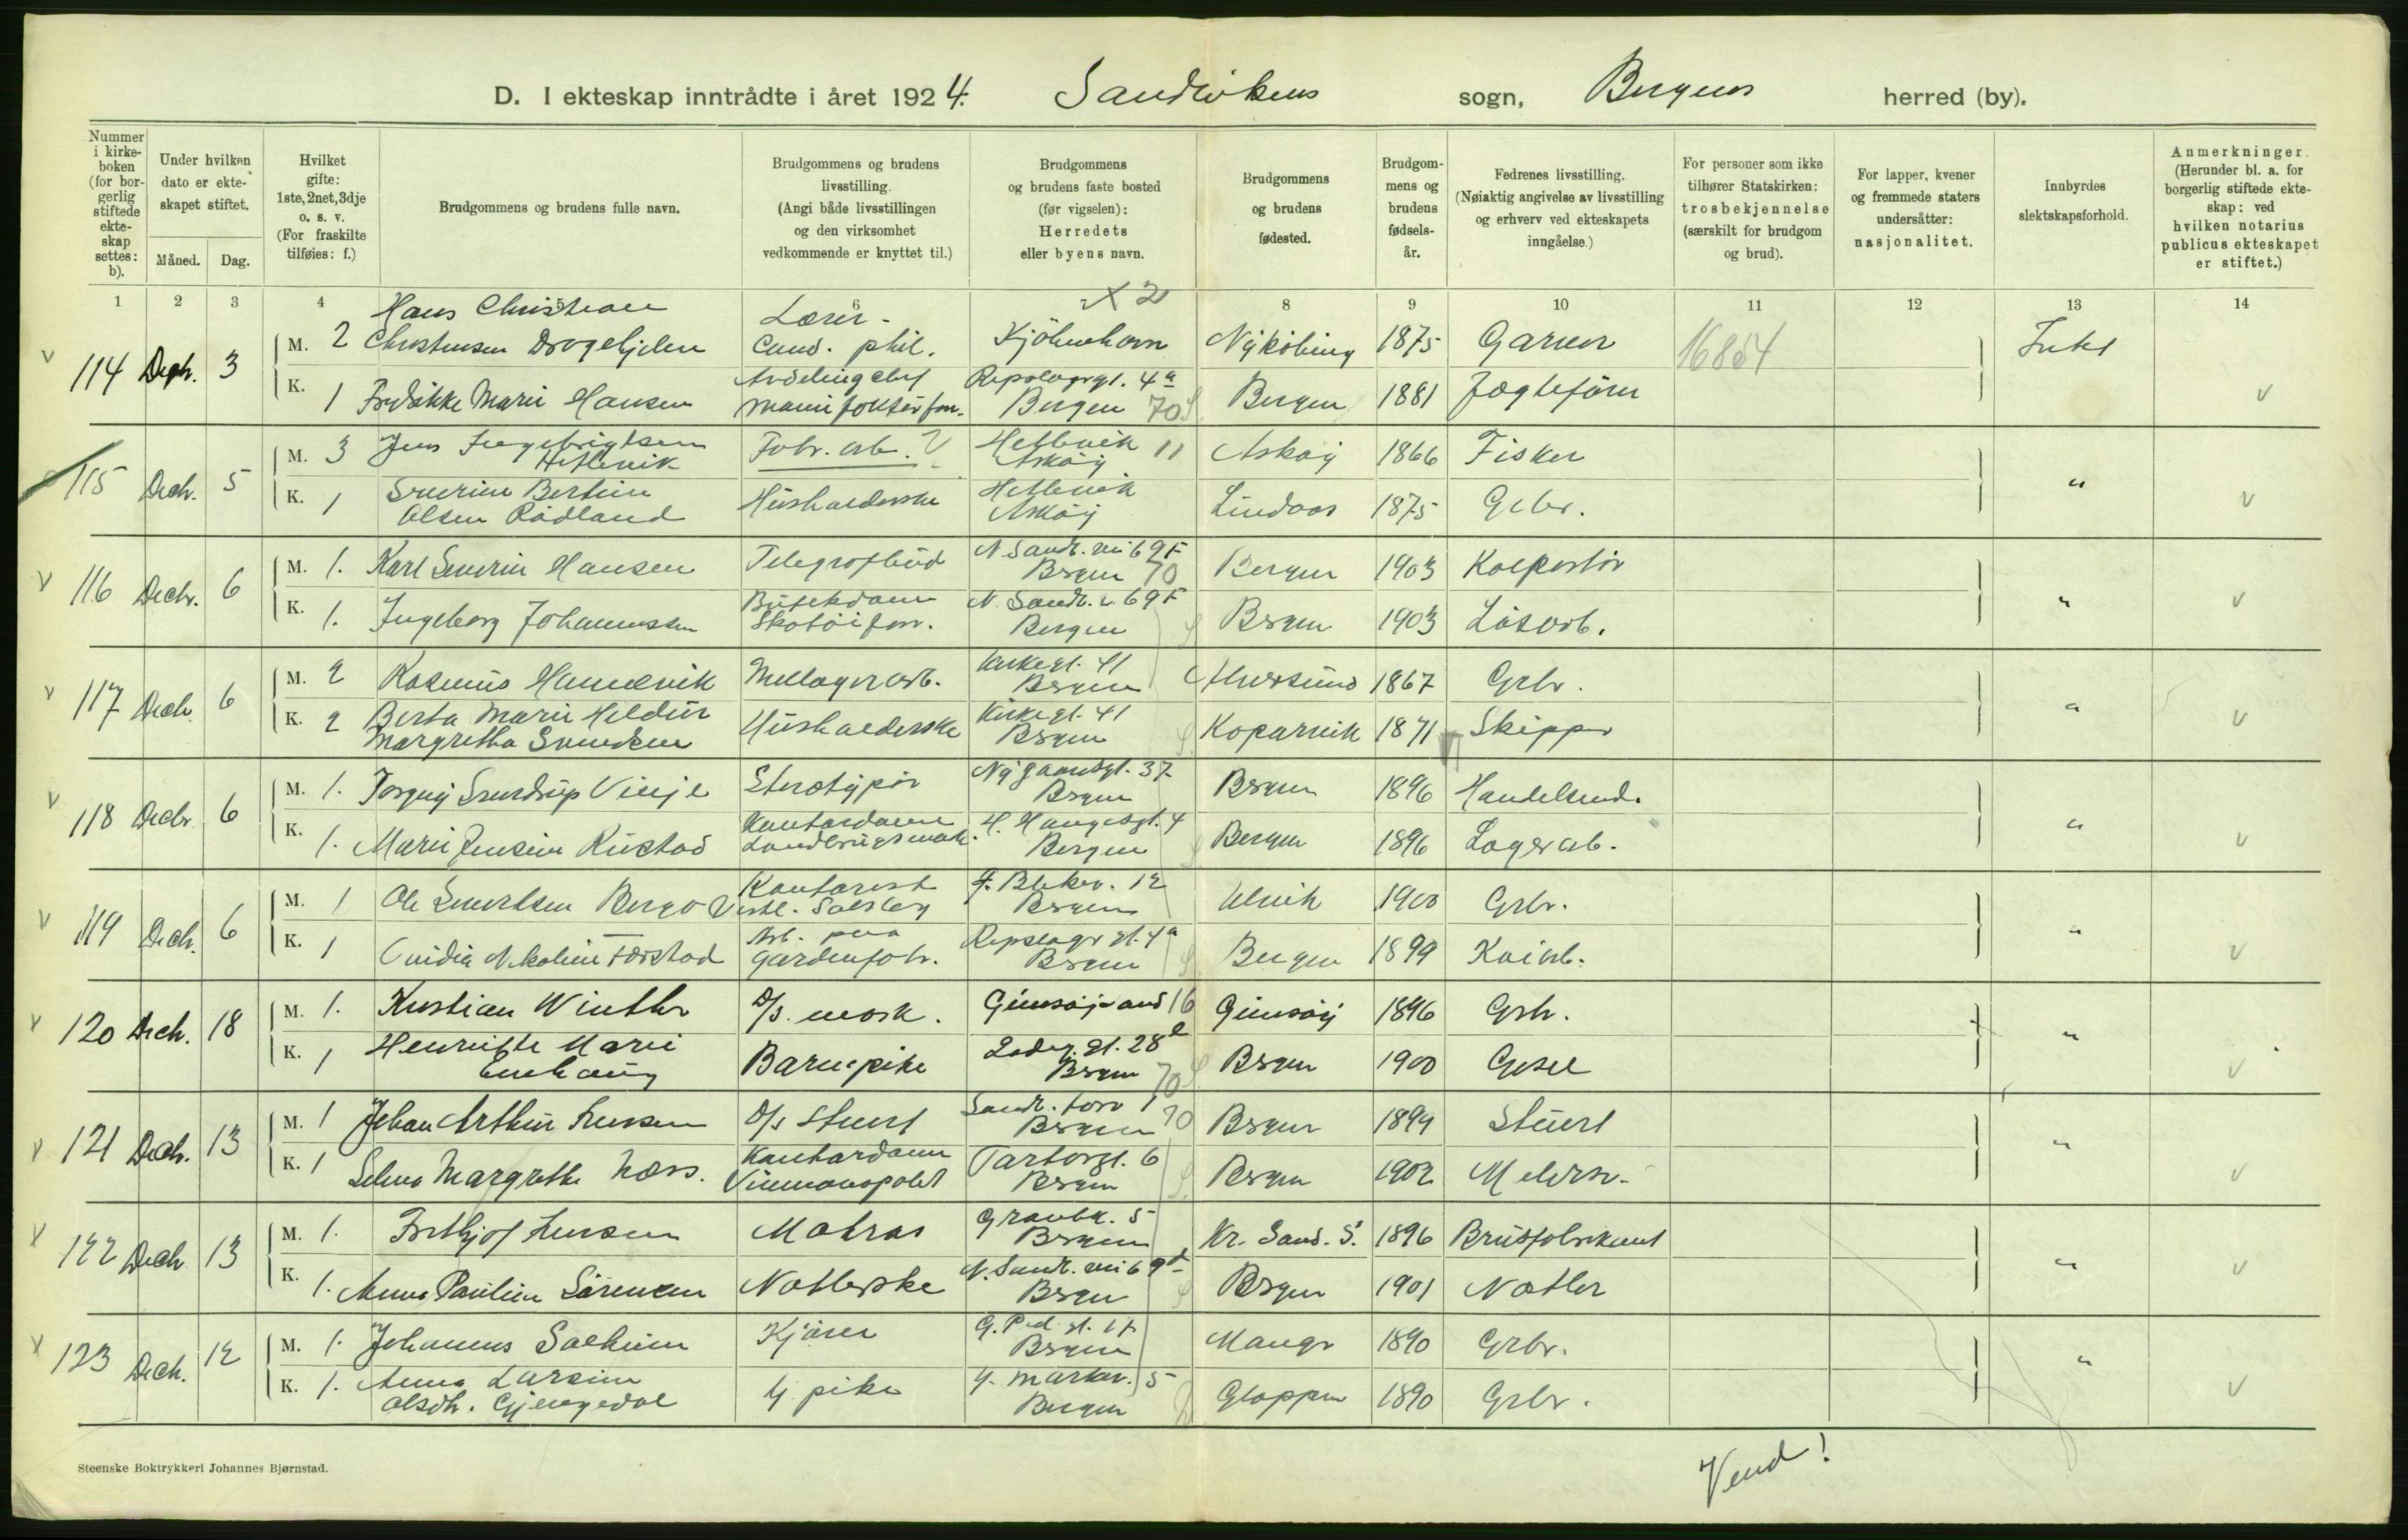 D. I ekteskap inntrådte i året 1924. Sandvikens sogn, Bergens herred (by).
Nummer i kirkeboken (for borgerlig stiftede ekteskap settes: b).
Under hvilken dato er ekteskapet stiftet.
Måned. Dag.
Hvilket gifte: 1ste, 2net, 3dje o. s. v. (For fraskilte tilføies: f.)
Brudgommens og brudens fulle navn.
Brudgommens og brudens livsstilling. (Angi både livsstillingen og den virksomhet vedkommende er knyttet til.)
Brudgommens og brudens faste bosted (før vigselen): Herredets eller byens navn.
Brudgommens og brudens fødested.
Brudgommens og brudens fødselsår.
Fedrenes livsstilling. (Nøiaktig angivelse av livsstilling og erhverv ved ekteskapets inngåelse.)
For personer som ikke tilhører Statskirken: trosbekjennelse (særskilt for brudgom og brud).
For lapper, kvener og fremmede staters undersåtter: nasjonalitet.
Innbyrdes slektskapsforhold.
Anmerkninger. (Herunder bl. a. for borgerlig stiftede ekteskap: ved hvilken notarius publicus ekteskapet er stiftet.)
1 2 3 4 5 6 8 9 10 11 12 13 14
114 Decbr. 3 M. 2 Hans Christian Christensen Drogehjelm Lærer - Cand. phil. Kjöbenhavn Nyköbing 1875 Garver 16854 Intet
K. 1 Fredrikke Marie Hansen Avdelingschef Repslagergt. 4a Bergen 70 Bergen 1881 v
115 Decbr. 5 M. 3 Jens Ingebrigtsen Hetlevik Fabr. arb. Hetlevik Askøy 11 Askøy 1866 Fisker "
K. 1 Severine Bertine Olsen Rödland Husholderske Hetlevik Askøy Lindaas 1875 Gbr. v
116 Decbr. 6 M. 1. Karl Severin Hansen Telegrafbud N. Sandv. vei 69 F Bergen 70 Bergen 1903 Kolportör "
K. 1. Ingeborg Johannessen Butikdame Skotöiforr. N. Sandv. v. 69 F Bergen Bergen 1903 Lösarb. v
117 Decbr. 6 M. 2 Rasmus Hamrevik Möllagerarb. Kirkegt. 41 Bergen Alversund 1867 Grbr. "
K. 2 Berta Marie Heldur Margretha Svendsen Husholderske Kirkegt. 41 Bergen Kopervik 1871 Skipper v
118 Decbr. 6 M. 1. Torquy Sverdrup Vinje Stereotypör Nygaardsgt. 37 Bergen Bergen 1896 Handelsmd. "
K. 1. Marie Jensine Rustad Kontordame Landbruksmask. H. Haugesgt. 4 Bergen Bergen 1896 Lagerarb. v
119 Decbr. 6 M. 1 Ole Sivertsen Berge Kontorist Vestl. Salslag Bergen Ulvik 1900 Grbr. "
K. 1 Ovidia Nikoline Færstad Arb. paa Gardinfabr. Repslagergt. 4a Bergen Bergen 1899 Kaiarb. v
120 Decbr. 18 M. 1. Kristian Winther D/s. mask. Gimsøysand 16 Gimsøy 1896 Grbr. "
K. 1 Henriette Marie Enehaug Barnepike Ladeg. gt. 28 Bergen 70 Bergen 1900 Gesel v
121 Decbr. 13 M. 1 Johan Arthur Iversen D/s Stuert Sandv. torv 1 Bergen 70 Bergen 1899 Stuert "
K. 1 Selma Margrethe Næss. Kontordame Vinmonopolet Tartargt. 6 Bergen Bergen 1902 v
122 Decbr. 13 M. 1. Fritjof Iversen Matros 5 Bergen Kr. Sand. S. 1896 Brusfabrikant "
K. 1. Anna Pauline Sörensen Notlerske N. Sandv. vei 69 Bergen Bergen 1901 Notler v
123 Decbr. 12 M. 1. Johannes Solheim Kjörer Bergen Manger 1890 Grbr. "
K. 1. Anna Larsine Olsdtr. Gjengedal Hj. pike 5 Bergen Gloppen 1890 Grbr. v
Vend!
Steenske Boktrykkeri Johannes Bjørnstad.